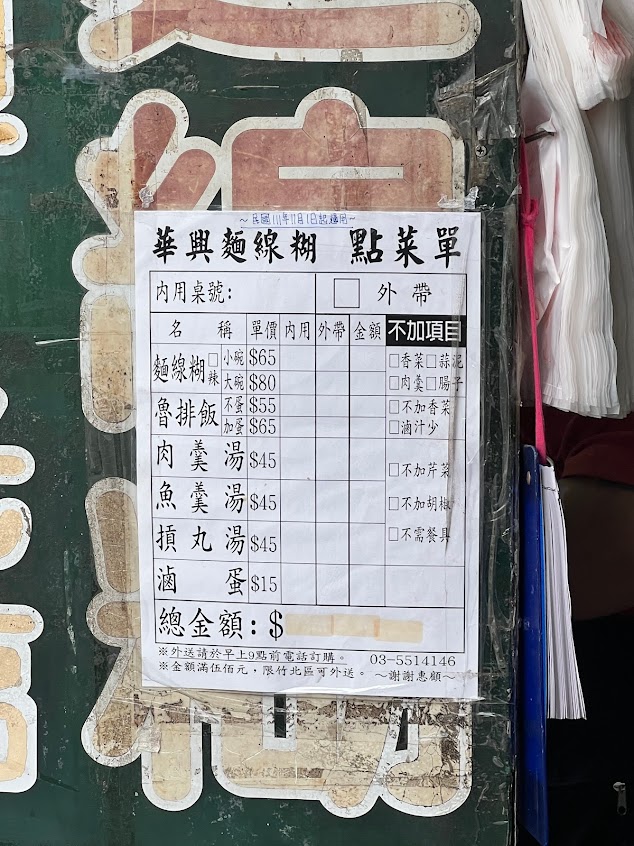 ～民國111年11月1日起適用～
華興麵線糊 點菜單
內用桌號: □ 外帶
名稱 單價 內用 外帶 金額 不加項目
麵線糊 □辣 小碗 $65 □香菜□蒜泥
大碗 $80 □肉羹□腸子
魯排飯 不蛋 $55 □不加香菜
加蛋 $65 □滷汁少
肉羹湯 $45 □不加芹菜
魚羹湯 $45 □不加胡椒
摃丸湯 $45 □不需餐具
滷蛋 $15
總金額: $
※外送請於早上9點前電話訂購。 03-5514146
※金額滿伍佰元，限竹北區可外送。 ～謝謝惠顧～